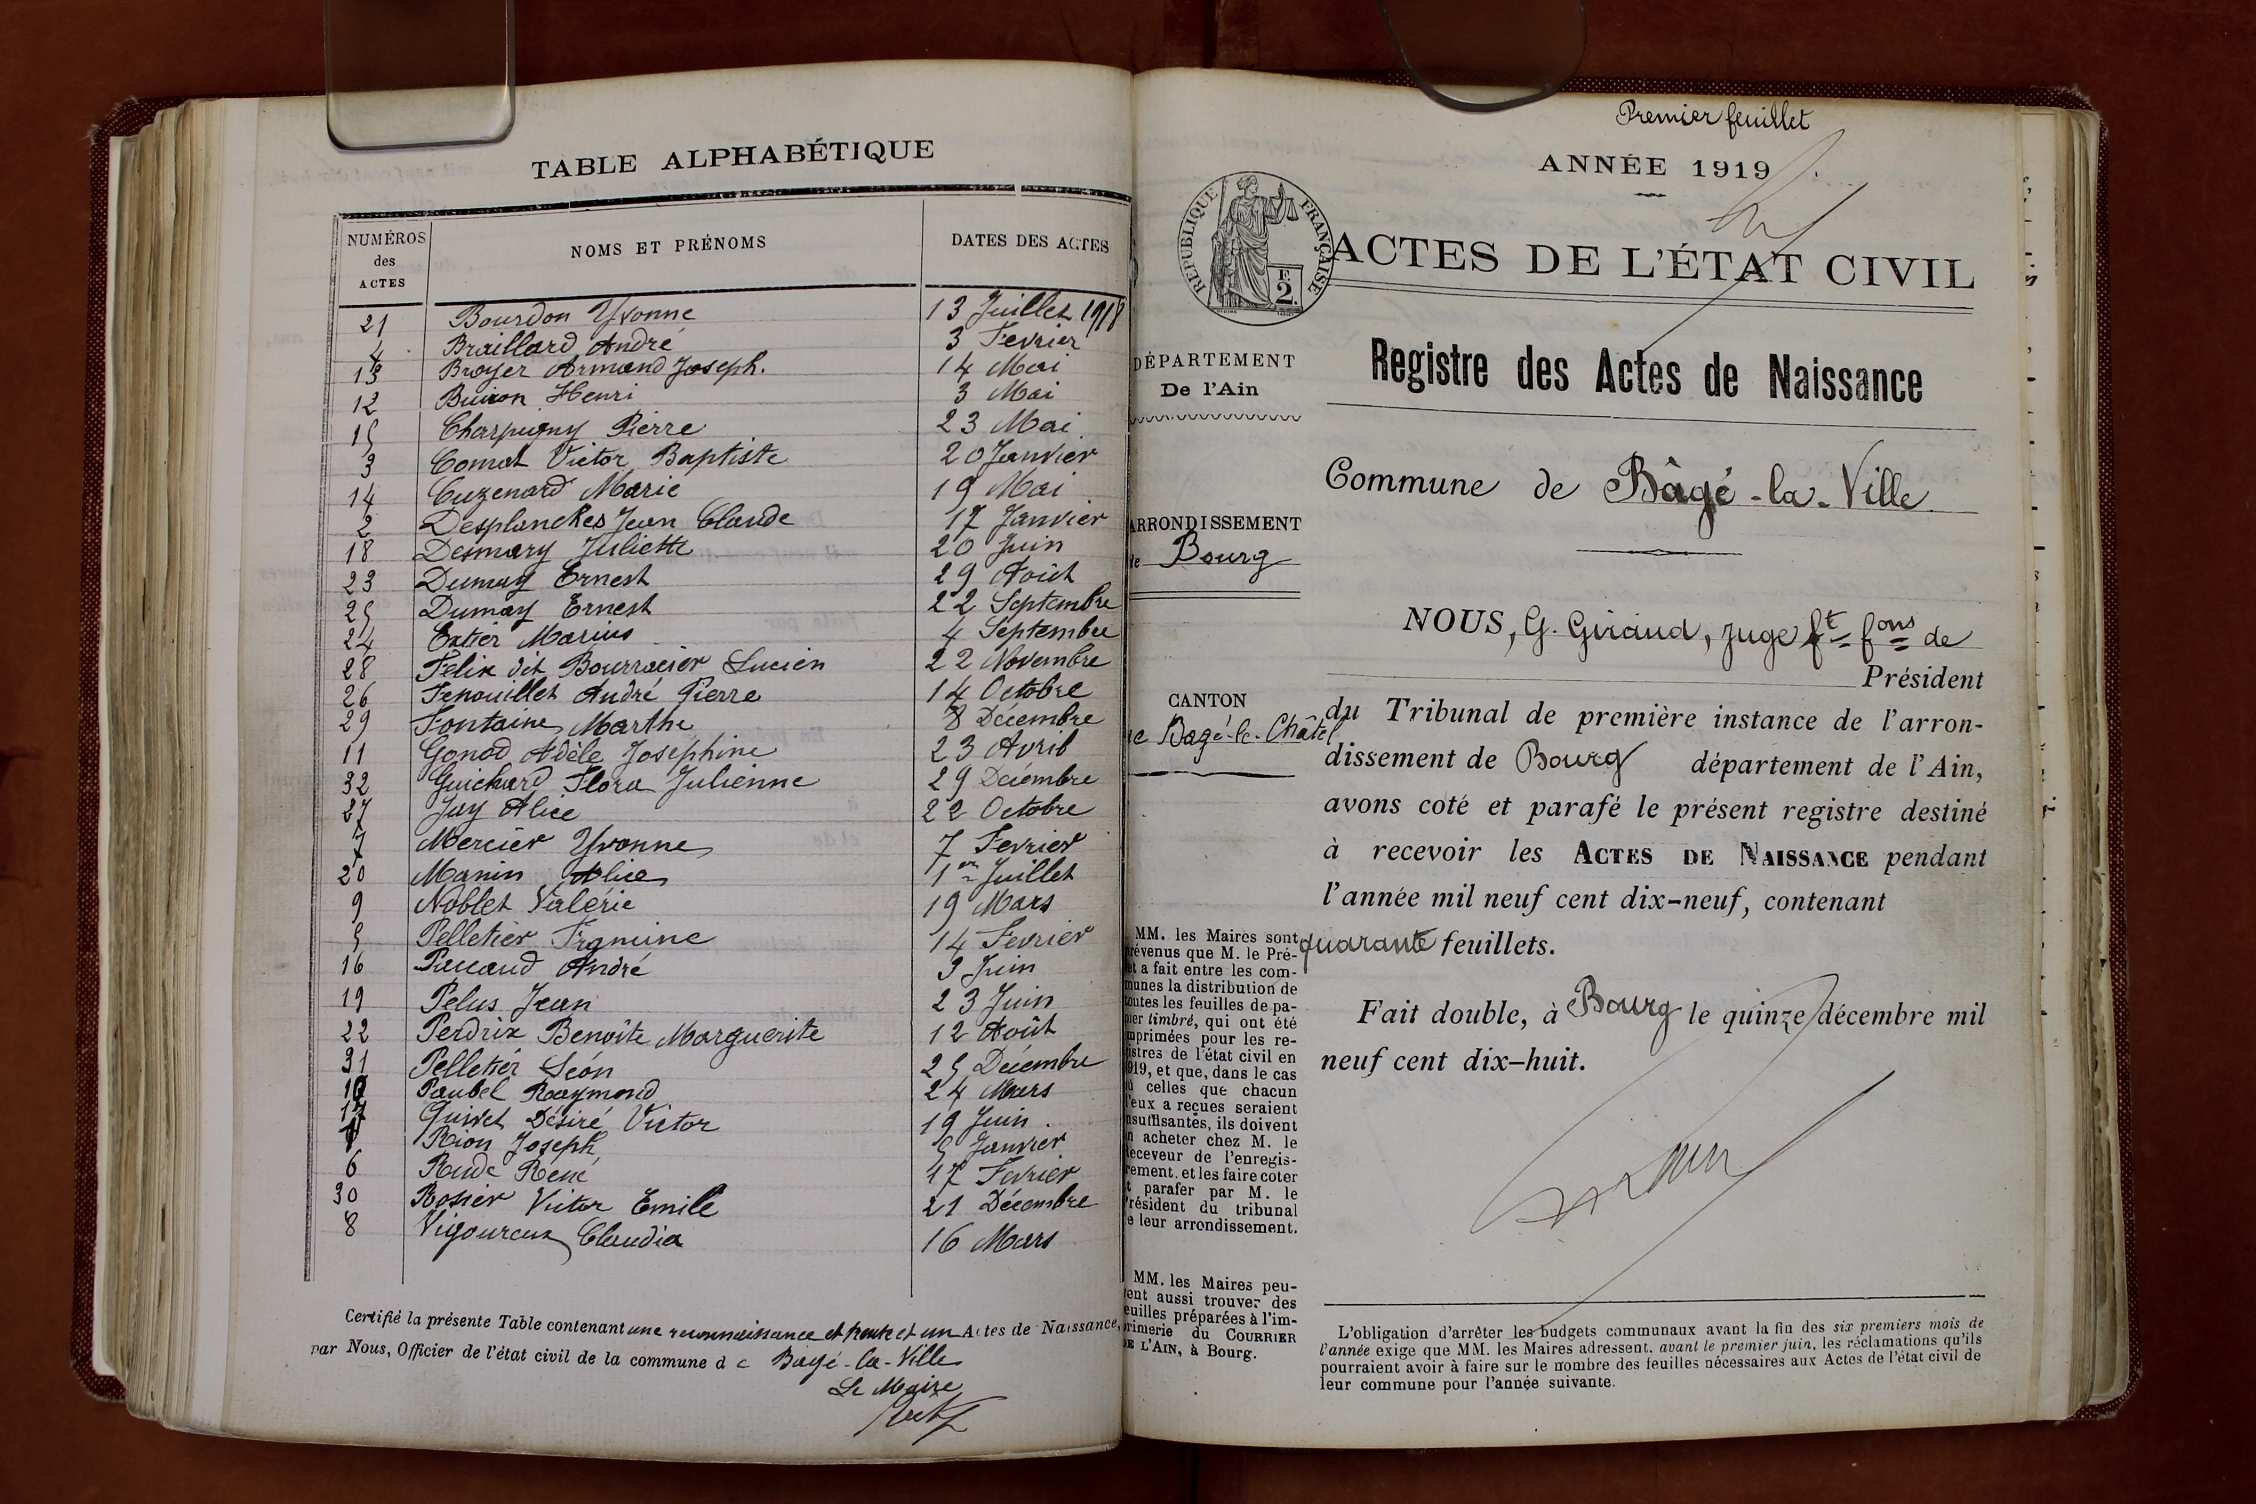 TABLE ALPHABÉTIQUE
NUMÉROS des ACTES NOMS ET PRÉNOMS DATES DES ACTES
21 Bourdon Yvonne 13 Juillet 1918
4 Braillard André 3 Fevrier
13 Broyer Armand Joseph. 14 Mai
12 Buiron Henri 3 Mai
15 Charpigny Pierre 23 Mai
3 Comat Victor Baptiste 20 Janvier
14 Cuzenard Marie 19 Mai
2 Desplanches Jean Claude 17 Janvier
18 Desmary Juliette 20 Juin
23 Dumay Ernest 29 Août
25 Dumay Ernest 22 Septembre
24 Extier Marius 4 Septembre
28 Félix dit Bourracier Lucien 22 Novembre
26 Fenouillet André Pierre 14 Octobre
29 Fontaine Marthe 8 Décembre
11 Gonod Adèle Joséphine 23 Avril
32 Guichard Flora Julienne 29 Décembre
27 Jay Alice 22 Octobre
7 Mercier Yvonne 7 Fevrier
20 Manin Alice 1er Juillet
9 Noblet Valérie 19 Mars
5 Pelletier 14 Fevrier
16 Paccaud André 3 Juin
19 Pelus Jean 23 Juin
22 Perdrix Benoîte Marguerite 12 Août
31 Pelletier Léon 25 Décembre
10 Paubel Raymond 24 Mars
17 Quivet Désiré Victor 19 Juin.
1 Rion Joseph 5 Janvier
6 Rude René 17 Fevrier
30 Rosier Victor Emile 21 Décembre
8 Vigoureux Claudia 16 Mars
Certifié la présente Table contenant une reconnaissance et trente et un Actes de Naissance,
par Nous, Officier de l'état civil de la commune de Bâgé-la-Ville
Le Maire
Premier feuillet
ANNÉE 1919
RÉPUBLIQUE FRANÇAISE
F.
2.
ACTES DE L'ÉTAT CIVIL
DÉPARTEMENT
De l'Ain
ARRONDISSEMENT
de Bourg
CANTON
de Bagé-le-Châtel
MM. les Maires sont
prévenus que M. le Pré-
fet a fait entre les com-
munes la distribution de
toutes les feuilles de pa-
pier timbré, qui ont été
imprimées pour les re-
gistres de l'état civil en
1919, et que, dans le cas
où celles que chacun
d'eux a reçues seraient
insuffisantes, ils doivent
en acheter chez M. le
Receveur de l'enregis-
trement, et les faire coter
et parafer par M. le
Président du tribunal
de leur arrondissement.
MM. les Maires peu-
vent aussi trouver des
feuilles préparées à l'im-
primerie du COURRIER
DE L'AIN, à Bourg.
Registre des Actes de Naissance
Commune de Bâgé-la-Ville
NOUS, G. Giraud, juge ft fons de
Président
du Tribunal de première instance de l'arron-
dissement de Bourg département de l'Ain,
avons coté et parafé le présent registre destiné
à recevoir les ACTES DE NAISSANCE pendant
l'année mil neuf cent dix-neuf, contenant
quarante feuillets.
Fait double, à Bourg le quinze décembre mil
neuf cent dix-huit.
L'obligation d'arrêter les budgets communaux avant la fin des six premiers mois de
l'année exige que MM. les Maires adressent, avant le premier juin, les réclamations qu'ils
pourraient avoir à faire sur le nombre des feuilles nécessaires aux Actes de l'état civil de
leur commune pour l'année suivante.